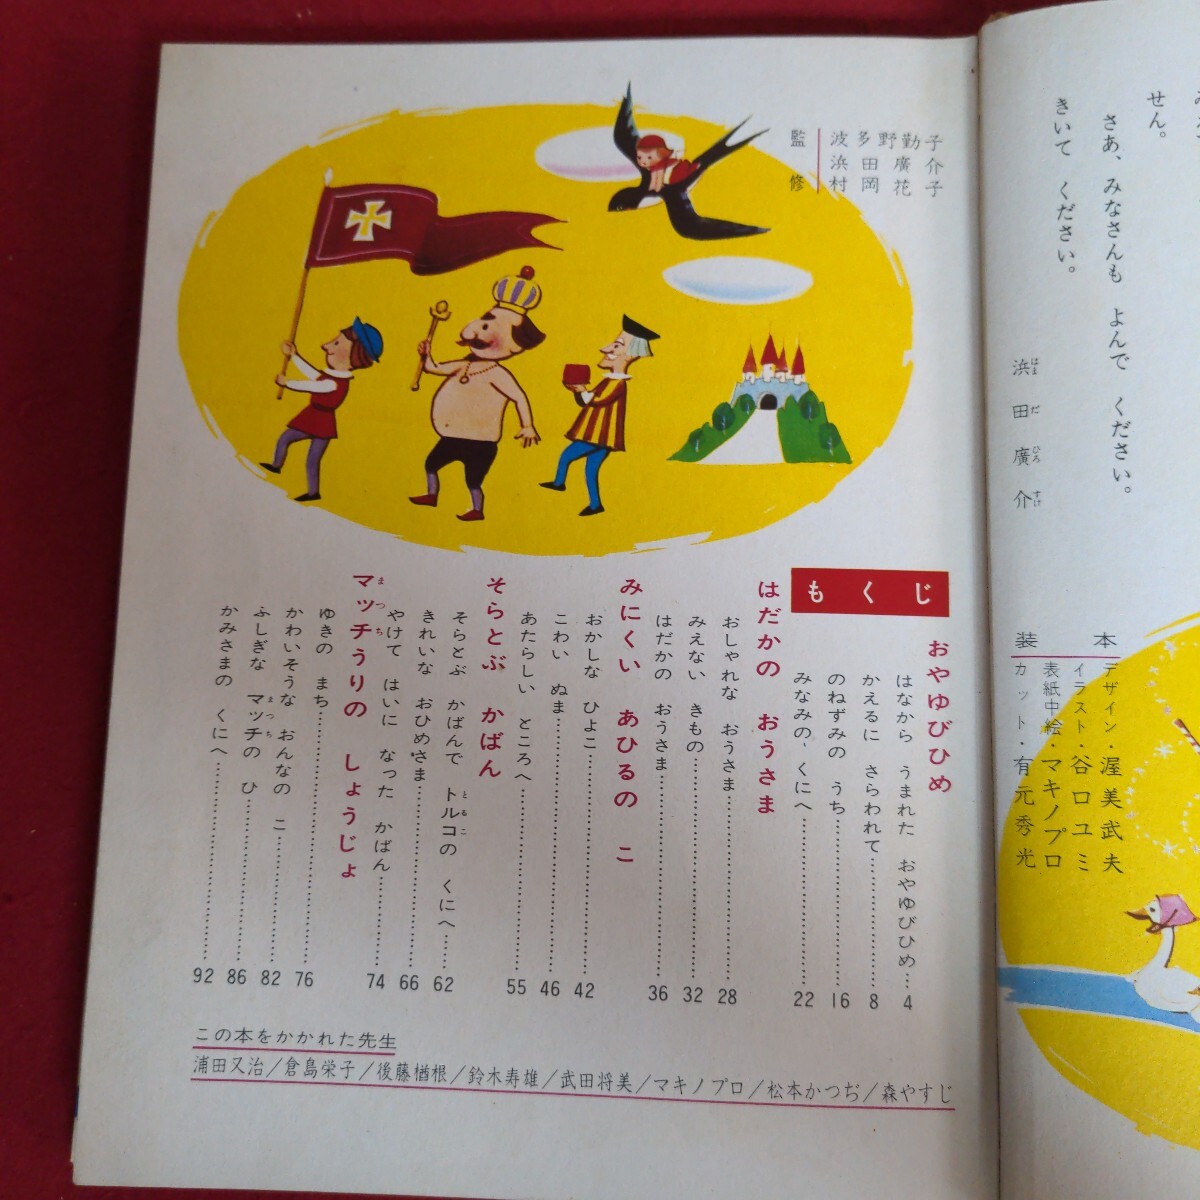 せん。
さあ、みなさんも よんで ください。
きいて ください。
浜田廣介
はまだひろすけ
装本
デザイン・渥美武夫
イラスト・谷口ユミ
表紙中絵・マキノプロ
カット・有元秀光
監修
波多野勤子
浜田廣介
村岡花子
もくじ
おやゆびひめ
はなから うまれた おやゆびひめ…4
かえるに さらわれて…8
のねずみの うち…16
みなみの くにへ…22
はだかの おうさま
おしゃれな おうさま…28
みえない きもの…32
はだかの おうさま…36
みにくい あひるの こ
おかしな ひよこ…42
こわい ぬま…46
あたらしい ところへ…55
そらとぶ かばん
そらとぶ かばんで トルコの くにへ…62
とるこ
きれいな おひめさま…66
やけて はいに なった かばん…74
マッチうりの しょうじょ
まつち
ゆきの まち…76
かわいそうな おんなの こ…82
ふしぎな マッチの ひ…86
まつち
かみさまの くにへ…92
この本をかかれた先生
浦田又治/倉島栄子/後藤楢根/鈴木寿雄/武田将美/マキノプロ/松本かつぢ/森やすじ